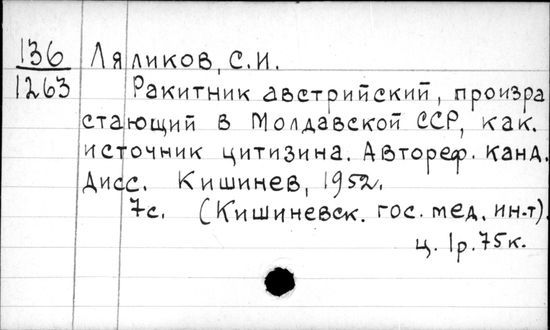 136 Ляликов, С.И.
1263 Ракитник австрийский, произра
стающий в Молдавской ССР, как.
источник цитизина. Автореф. канд.
дисс. Кишинев, 1952.
7с. (Кишиневск. гос. мед. ин-т).
ц. 1р.75к.